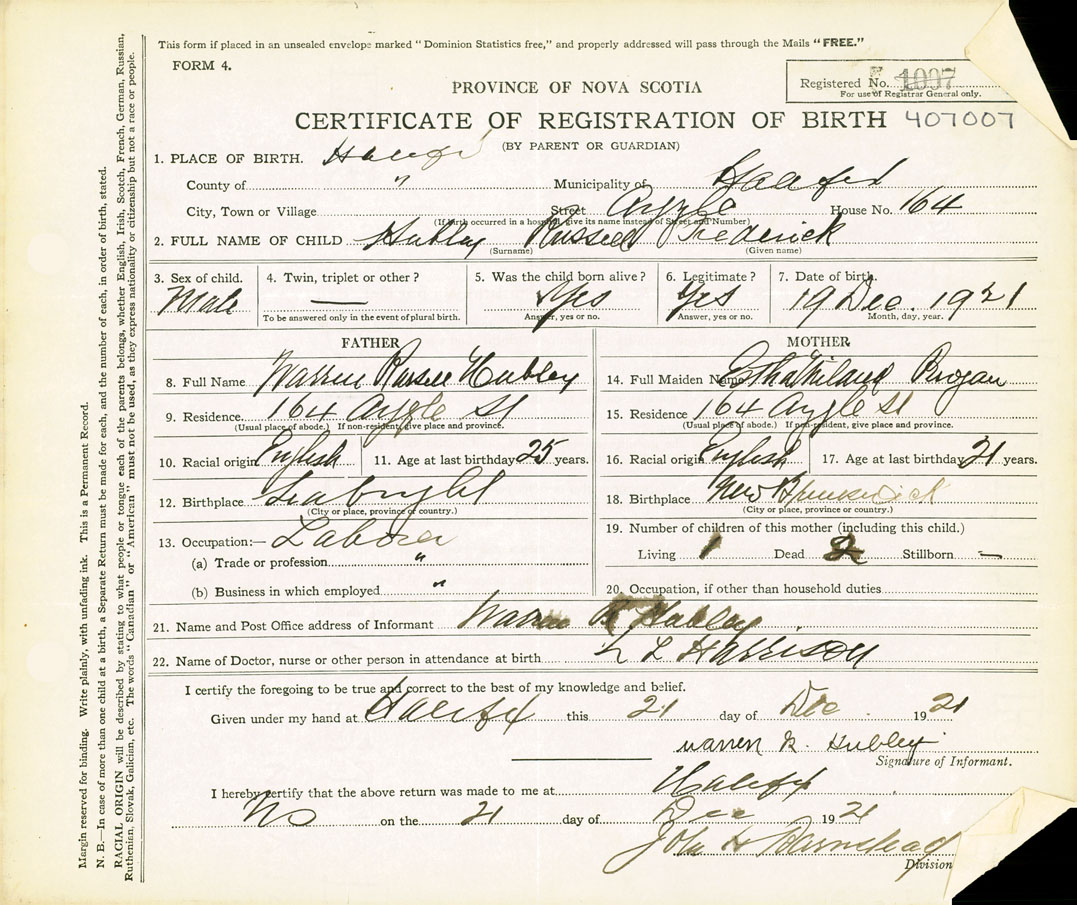 This form if placed in an unsealed envelope marked "Dominion Statistics free," and properly addressed will pass through the Mails "FREE."
FORM 4.
Registered No. 1097
For use of Registrar General only.
PROVINCE OF NOVA SCOTIA
CERTIFICATE OF REGISTRATION OF BIRTH 407007
(BY PARENT OR GUARDIAN)
1. PLACE OF BIRTH. Halifax
County of " Municipality of Halifax
City, Town or Village Street Argyle House No. 164
(If birth occurred in a hospital, give its name instead of Street and Number)
2. FULL NAME OF CHILD Hubley Russell Frederick
(Surname) (Given name)
3. Sex of child. 4. Twin, triplet or other? 5. Was the child born alive? 6. Legitimate? 7. Date of birth.
Male — Yes Yes 19 Dec. 1921
To be answered only in the event of plural birth. Answer, yes or no. Answer, yes or no. Month, day, year.
FATHER
8. Full Name Warren Russell Hubley
9. Residence. 164 Argyle St
(Usual place of abode.) If non-resident, give place and province.
10. Racial origin English 11. Age at last birthday 25 years.
12. Birthplace Seabright
(City or place, province or country.)
13. Occupation:— Laborer
(a) Trade or profession "
(b) Business in which employed "
MOTHER
14. Full Maiden Name Brogan
15. Residence 164 Argyle St
(Usual place of abode.) If non-resident, give place and province.
16. Racial origin English 17. Age at last birthday 21 years.
18. Birthplace New Brunswick
(City or place, province or country.)
19. Number of children of this mother (including this child.)
Living 1 Dead Stillborn —
20. Occupation, if other than household duties
21. Name and Post Office address of Informant Warren R Hubley
22. Name of Doctor, nurse or other person in attendance at birth L Harrison
I certify the foregoing to be true and correct to the best of my knowledge and belief.
Given under my hand at Halifax this 21 day of Dec 1921
Warren R. Hubley
Signature of Informant.
I hereby certify that the above return was made to me at Halifax
NS on the 21 day of Dec 1921
John H Barnstead
Division
Margin reserved for binding. Write plainly, with unfading ink. This is a Permanent Record.
N. B.—In case of more than one child at a birth, a Separate Return must be made for each, and the number of each, in order of birth, stated.
RACIAL ORIGIN will be described by stating to what people or tongue each of the parents belongs, whether English, Irish, Scotch, French, German, Russian,
Ruthenian, Slovak, Galician, etc. The words "Canadian" or "American" must not be used, as they express nationality or citizenship but not a race or people.